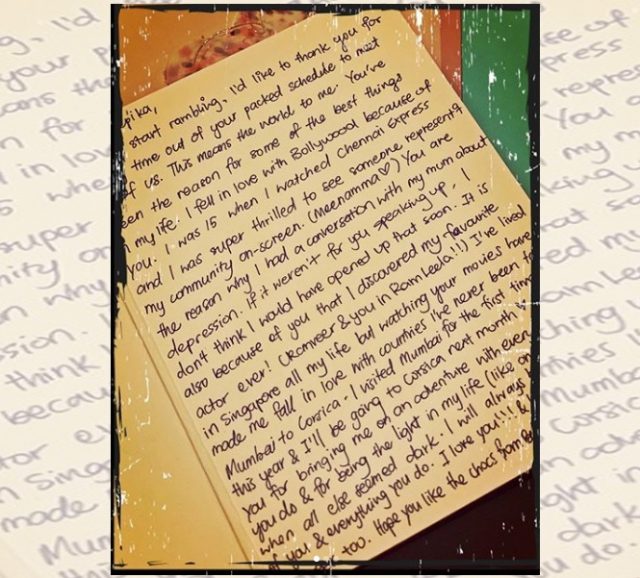 pika,
start rambling, I'd like to thank you for
time out of your packed schedule to meet
of us. This means the world to me. You've
een the reason for some of the best things
my life. I fell in love with Bollywood because of
you. I was 15 when I watched Chennai Express
and I was super thrilled to see someone representing
my community on-screen. (Meenamma♡) You are
the reason why I had a conversation with my mum about
depression. If it weren't for you speaking up, I
don't think I would have opened up that soon. It is
also because of you that I discovered my favourite
actor ever! (Ranveer & you in Ram Leela!!) I've lived
in Singapore all my life but watching your movies have
made me fall in love with countries I've never been to
Mumbai to Corsica - I visited Mumbai for the first time
this year & I'll be going to Corsica next month
you for bringing me on an adventure with ever
you do & for being the light in my life (like
when all else seemed dark. I will always
of you & everything you do. I love you!!! &
too. Hope you like the chocs from